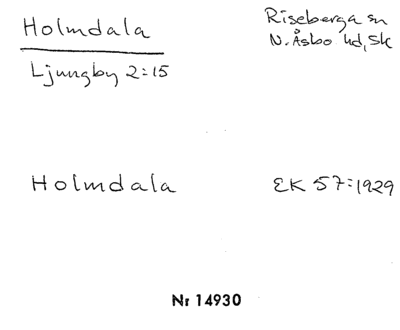 Holmdala
Riseberga sn
N. Åsbo hd, Sk
Ljungby 2:15
Holmdala
EK 57:1929
Nr 14930